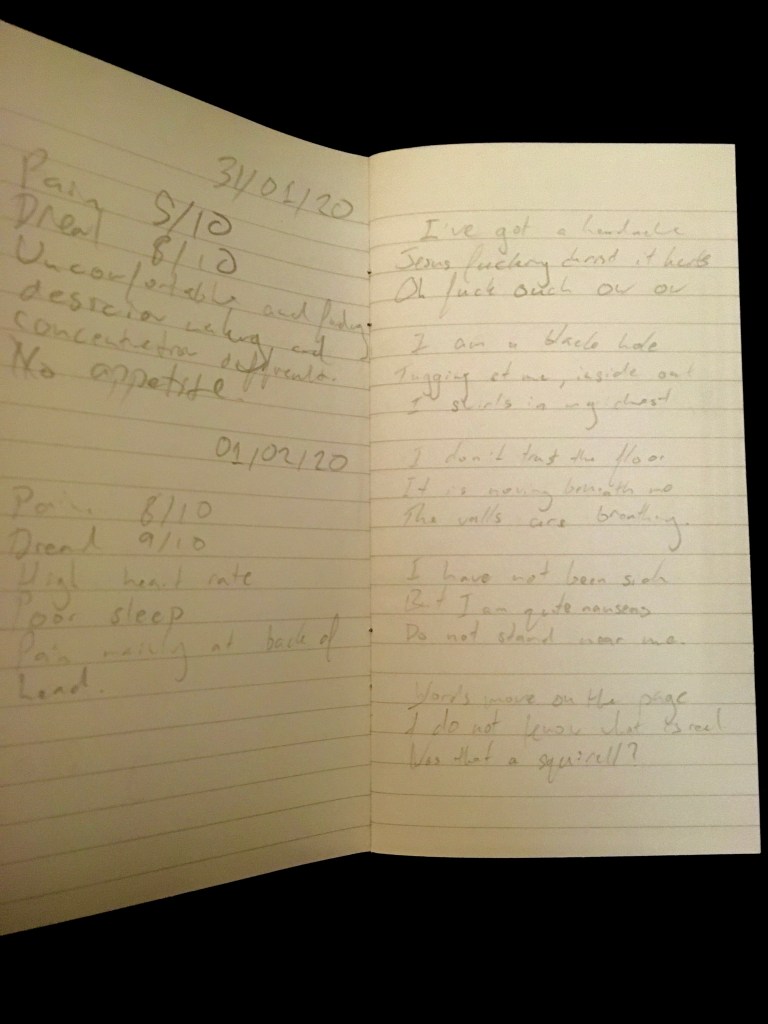 31/01/20
Pain 5/10
Dread 8/10
Uncomfortable and finding
desscion making and
concentration difficult.
No appetite.
01/02/20
Pain 8/10
Dread 9/10
High heart rate
Poor sleep
Pain mainly at back of
head.
I've got a headache
Jesus fucking christ it hurts
Oh fuck ouch ow ow
I am a black hole
Tugging at me, inside out
I swirls in my chest
I don't trust the floor
It is moving beneath me
The walls are breathing.
I have not been sick
But I am quite nauseus
Do not stand near me.
Words move on the page
I do not know what is real
Was that a squirell?